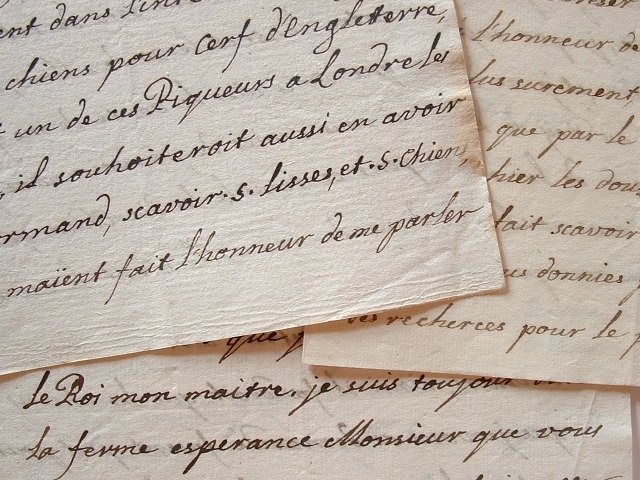 dans
chiens pour cerf d'Engleterre,
un de ces Piqueurs a Londre les
il souhoiteroit aussi en avoir
ormand, scavoir. 5. lisses, et. 5. chiens,
maïent fait l'honneur de me parler
l'honneur de
plus surement
que par le
hier les dou
fait scavoir
us donnies
des recherces pour le
que
le Roi mon maitre. je suis toujour
la ferme esperance Monsieur que vous